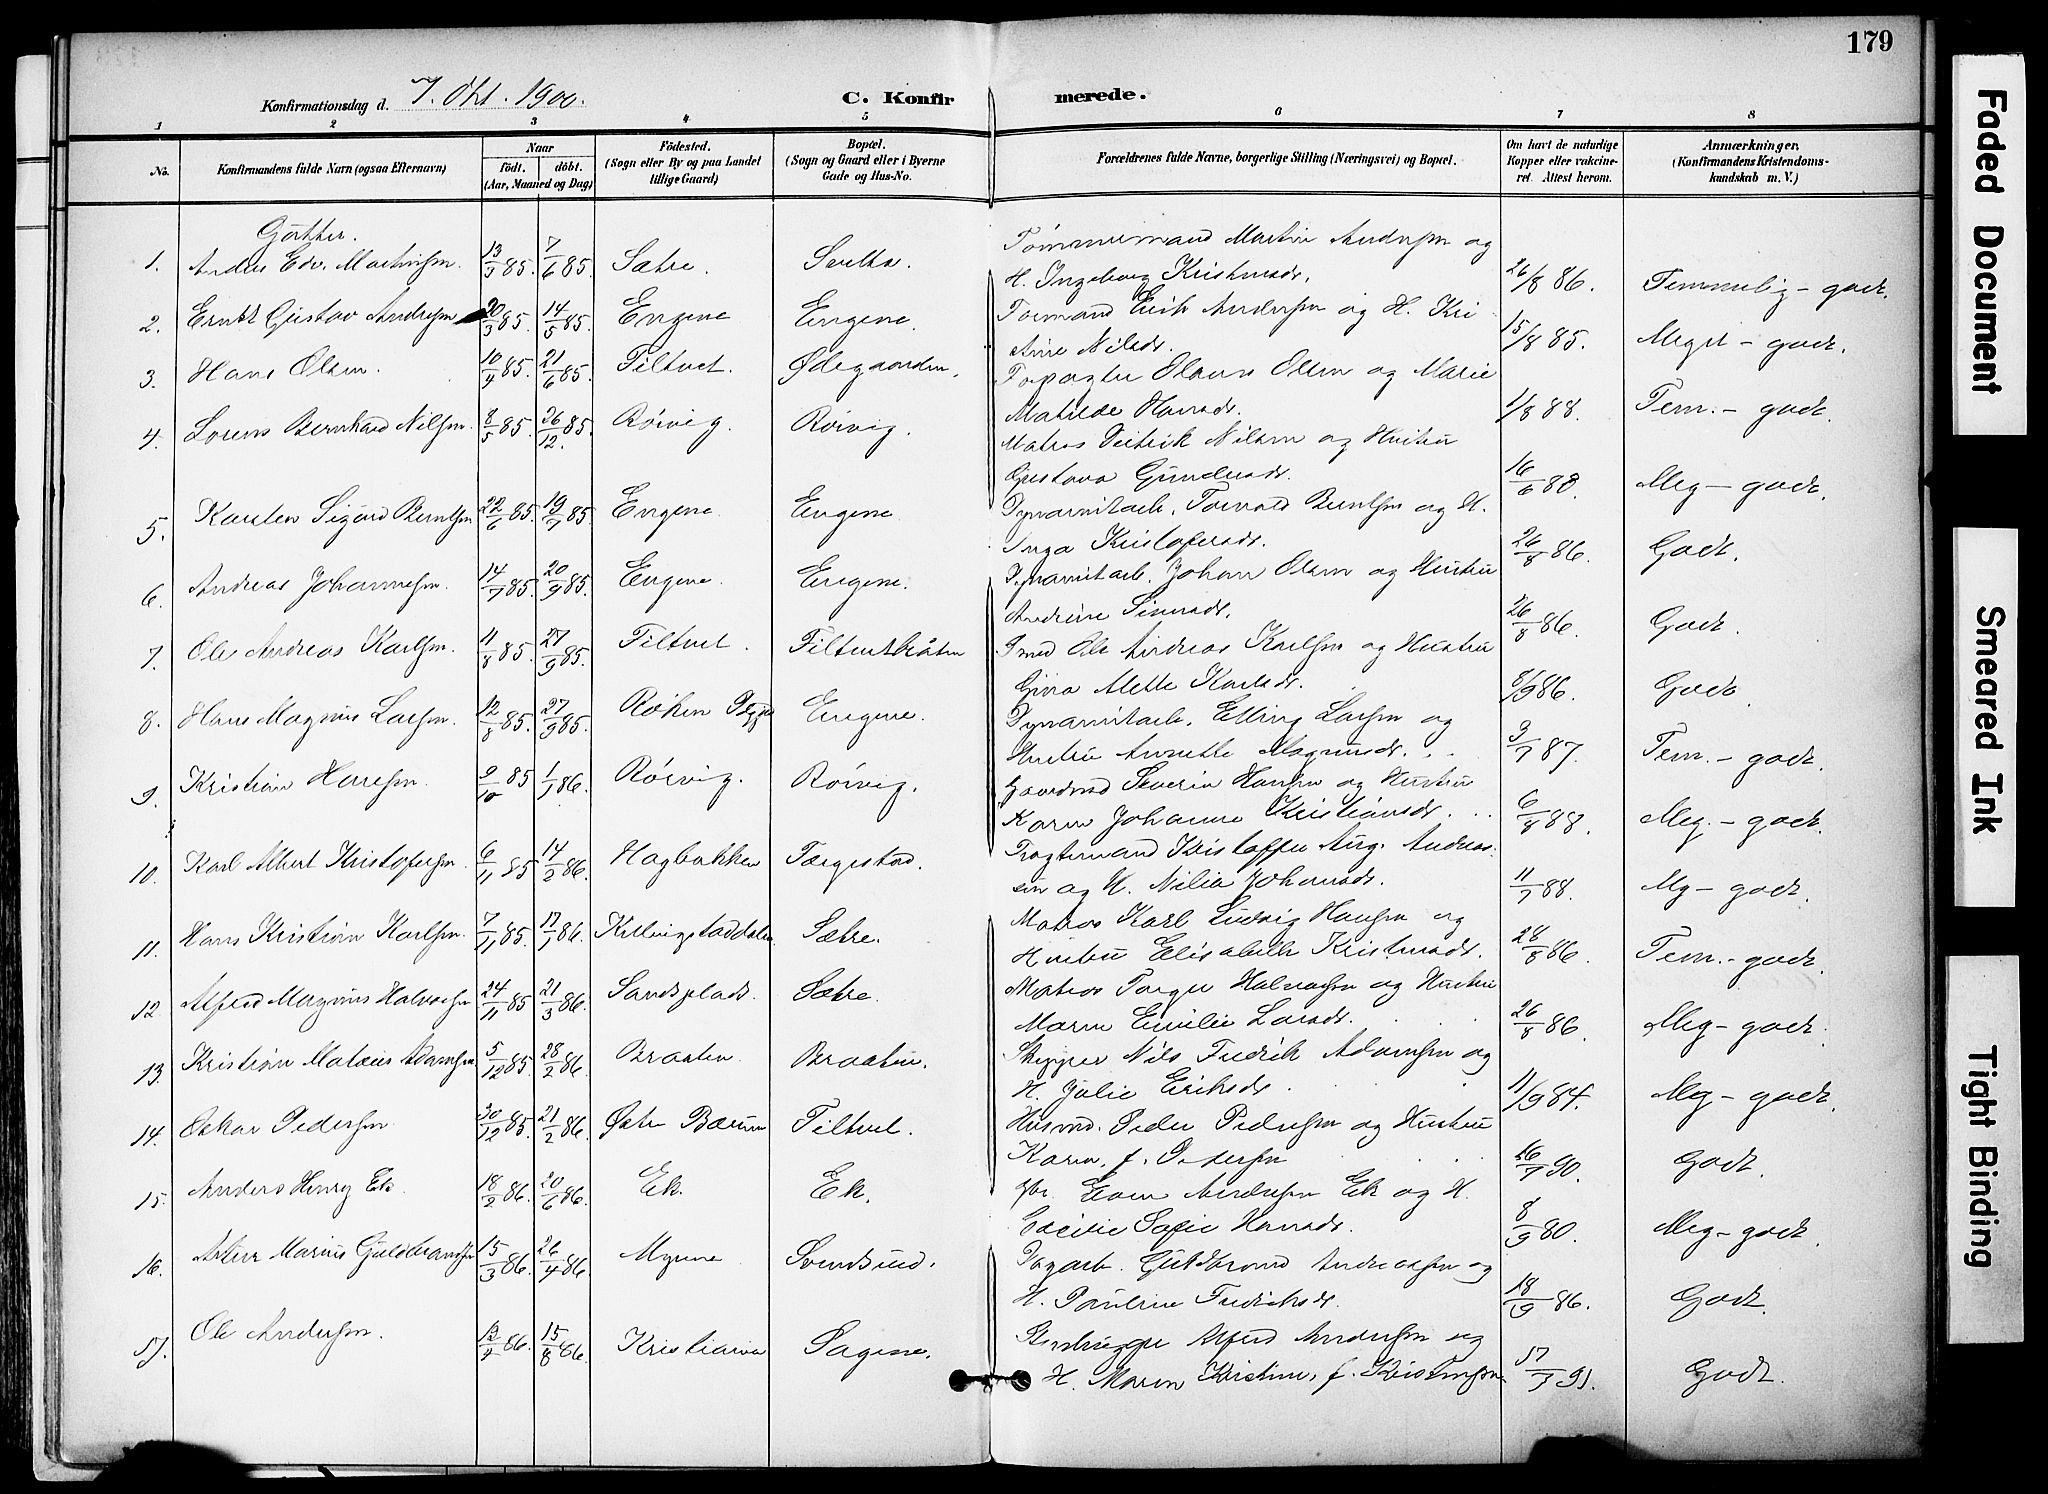 179
Konfirmationsdag d. 7. Okt. 1900. C. Konfir merede.
1 2 3 4 5 6 7 8
No. Konfirmandens fulde Navn (ogsaa Efternavn) Naar födt. döbt. (Aar, Maaned og Dag) Födested. (Sogn eller By og paa Landet tillige Gaard) Bopæl. (Sogn og Gaard eller i Byerne Gade og Hus-No. Forældrenes fulde Navne, borgerlige Stilling (Næringsvei) og Bopæl. Om havt de naturlige Kopper eller vakcineret. Attest herom. Anmærkninger. (Konfirmandens Kristendomskundskab m. V.)
Gutter.
1. Anders Edv. Martinsen. 13/3 85. 7/6 85. Sætre. Tømmermand Martin Andersen og
H. Ingeborg Kristensd. 26/8 86. Temmelig - godt.
2. Ernst Gustav Andersen 20/3 85. 14/5 85. Engene Engene. Formand Erik Andersen og H. Kri
Anne Nilsd. 15/8 85. Meget - godt.
3. Hans Olsen. 10/4 85. 21/6 85. Filtvet. Ødegaarden. Forpagter Olaus Olsen og Marie
Matilde Hansd. 1/8 88. Tem. - godt.
4. Lorens Bernhard Nilsen. 8/5 85. 26/12 85. Röivig. Röivig. Matros Nilsen og Hustru
Gustava Gundersd. 16/6 88. Meg - godt.
5. Karsten Sigurd Berntsen 22/6 85. 19/7 85. Engene. Engene. Dynamitarb. Torvald Berntsen og H.
Inga Kristofersd. 26/8 86. Godt.
6. Andreas Johannesen. 14/7 85. 20/9 85. Engene. Engene. Dynamitarb. Johan Olsen og Hustru
Andrine Simensd. 26/8 86. Godt.
7. Ole Andreas Karlsen. 11/8 85. 27/9 85. Filtvet. Filtvetbråten Smed Ole Andreas Karlsen og Hustru
Gina Mette Karlsd. 8/9 86. Godt
8. Hans Magnus Larsen. 12/8 85. 27/9 85. Röken Engene. Dynamitarb. Elling Larsen og
Hustru Annette Magnusd. 3/7 87. Tem. - godt.
9. Kristian Hansen. 9/10 85 1/1 86. Röivig. Röivig. Gaardmd Severin Hansen og Hustru
Karen Johanne Kristiansd. 6/8 88. Meg. - godt.
10. Karl Albert Kristofersen. 6/11 85 14/2 86. Hagbakken Tærgestad. Fragtemand Kristoffer Aug. Andreas-
sen og H. Nilia Johansd. 11/7 88. Mg - godt.
11. Hans Kristian Karlsen. 7/11 85. 17/1 86. Killingstaddalen Sætre. Matros Karl Ludvig Hansen og
Hustru Elisabeth Kristensd. 28/8 86. Tem. - godt.
12. Alfred Magnus Halvorsen 24/11 85 21/3 86. Sandsplads. Sætre. Matros Torger Halvorsen og Hustru
Maren Emilie Larsd. 26/8 86. Meg - godt.
13. Kristian Mateus Adamsen 5/12 85. 28/2 86. Braaten. Braaten. Skipper Nils Fredrik Adamsen og
H. Julie Eriksd. 11/9 84. Meg - godt.
14. Oskar Pedersen. 30/12 85. 21/2 86. Østre Bærum Filtvet. Husmd. Peder Pedersen og Hustru
Karen, f. Pedersen 26/7 90. Godt.
15. Anders Henry Ek. 18/2 86. 20/6 86. Ek. Ek. Even Andersen Ek og H.
Cecilie Sofie Hansd. 8/9 80. Meg - godt.
16. Marius Guldbrandsen 15/3 86. 26/4 86 Myrene Svendsrud. Dagarb. Guldbrand Andreassen og
H. Pauline Fredriksd. 18/9 86. Godt.
17. Ole Andersen. 86. 15/8 86. Kristiania Sagene. Stenhugger Alfred Andersen og
H. Maren Kristine, f. Kristensen. 17/7 91. Godt.
Faded Document
Smeared Ink
Tight Binding